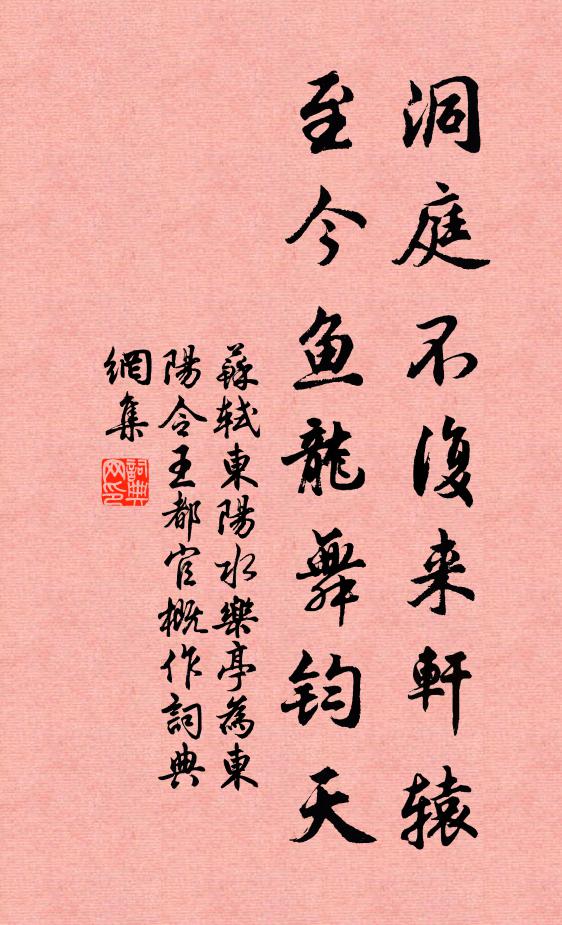 洞庭不復来軒辕
至今鱼龍舞钧天
蘇轼東陽水樂亭為東
陽令王都官概作詞典
網集
詞典
网印